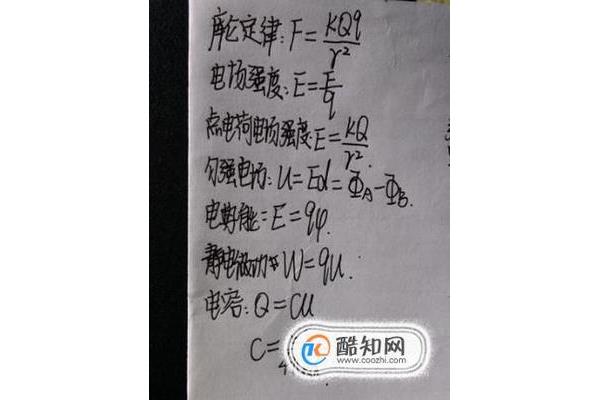 库仑定律: F = KQq/r²
电场强度: E = F/q
点电荷电场强度: E = KQ/r².
匀强电场: U = Ed = ΦA - ΦB.
电势能 = E = qφ.
静电力做功 W = qU.
电容: Q = CU
C =
酷知网
www.coozhi.com